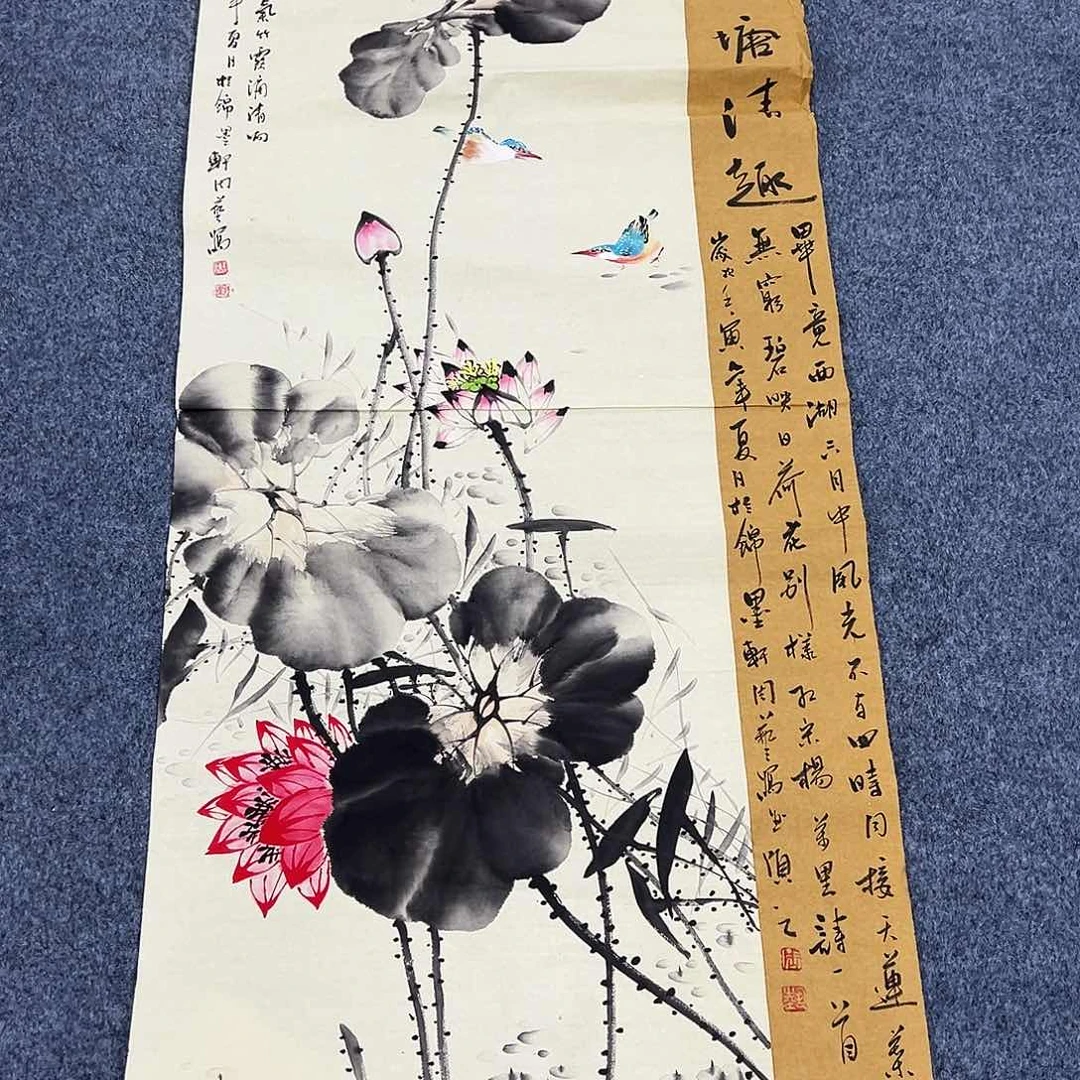 塘清趣
畢竟西湖六月中風光不与四時同接天蓮葉
無窮碧映日荷花別樣红宋楊萬里詩一首
歲次壬寅年夏月於錦墨軒周藝寫並題之
氣竹露滴清响
年夏月於錦墨軒周藝寫